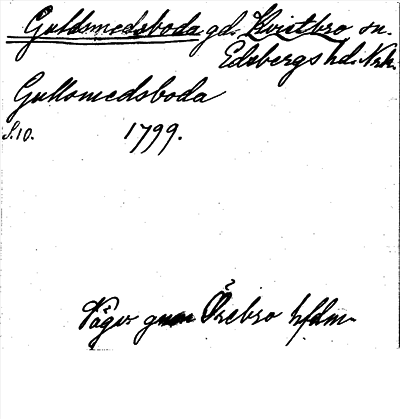 Guldsmedsboda gd. Kvistbro sn.
Edsbergs hd. Nrk.
Gullsmedsboda
S. 10. 1799.
Vägar gnm Örebro hfdm